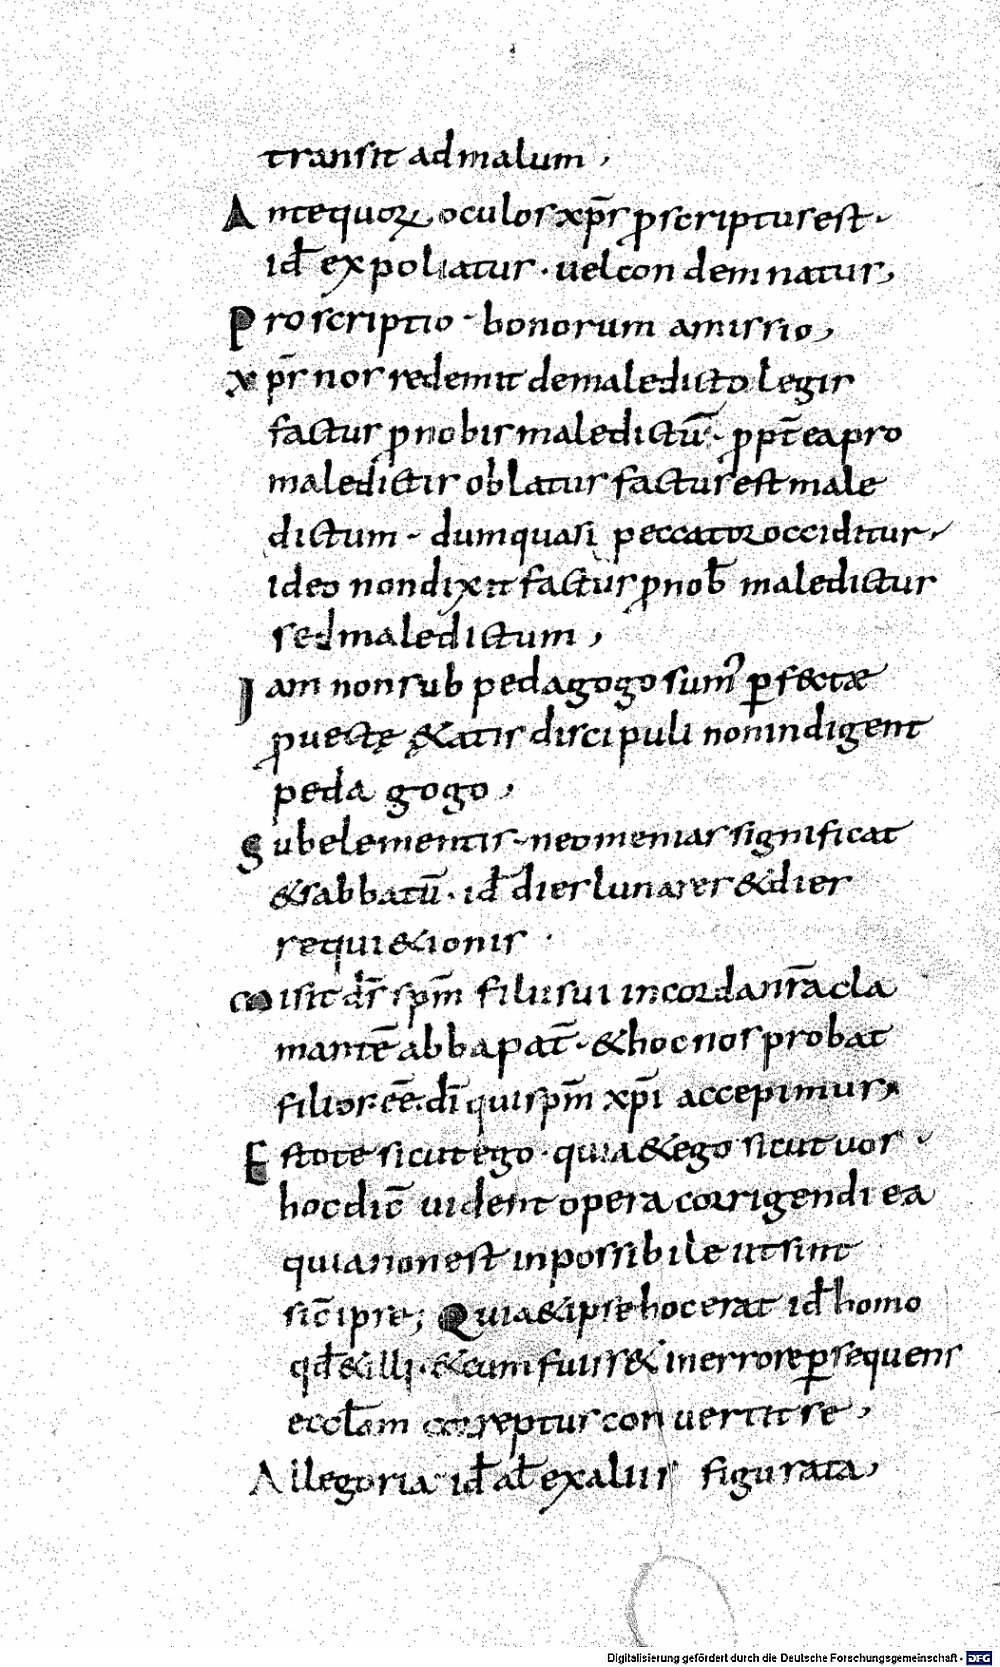 transit ad malum,
Ante quorꝝ oculos xp̄s ꝓscriptus est·
id̄ expoliatur· uel condemnatur,
Proscriptio· bonorum amissio,
xp̄s nos redemit de maledicto legis
factus ꝓ nobis maledictū· ꝓpt̄ ea pro
maledictis oblatus factus est male
dictum· dum quasi peccator occiditur·
ideo non dixit factus ꝓ nob̄ maledictus
sed maledictum,
Iam non sub pedagogo sumꝰ ꝑfectæ
ꝓuectę &atis discipuli non indigent
pedagogo,
Sub elementis· neomenias significat
& sabbatū· id̄ dies lunares & dies
requi&ionis·
Misit d̄s sp̄m filii sui in corda nr̄a cla
mantē abba pat̄· & hoc nos probat
filios ēē d̄i qui sp̄m xp̄i accepimus,
Estote sicut ego· quia & ego sicut uos·
hoc dic̄ uident opera corrigendi ea
quia non est inpossibile ut sint
sic̄ ipse; Quia & ipse hoc erat id̄ homo
qd̄ & illi· & cum fuiss& in errore ꝑsequens
eccl̄am correptus conuertit se,
Allegoria id̄ al̄ ex aliis figurata,
Digitalisierung gefördert durch die Deutsche Forschungsgemeinschaft - DFG